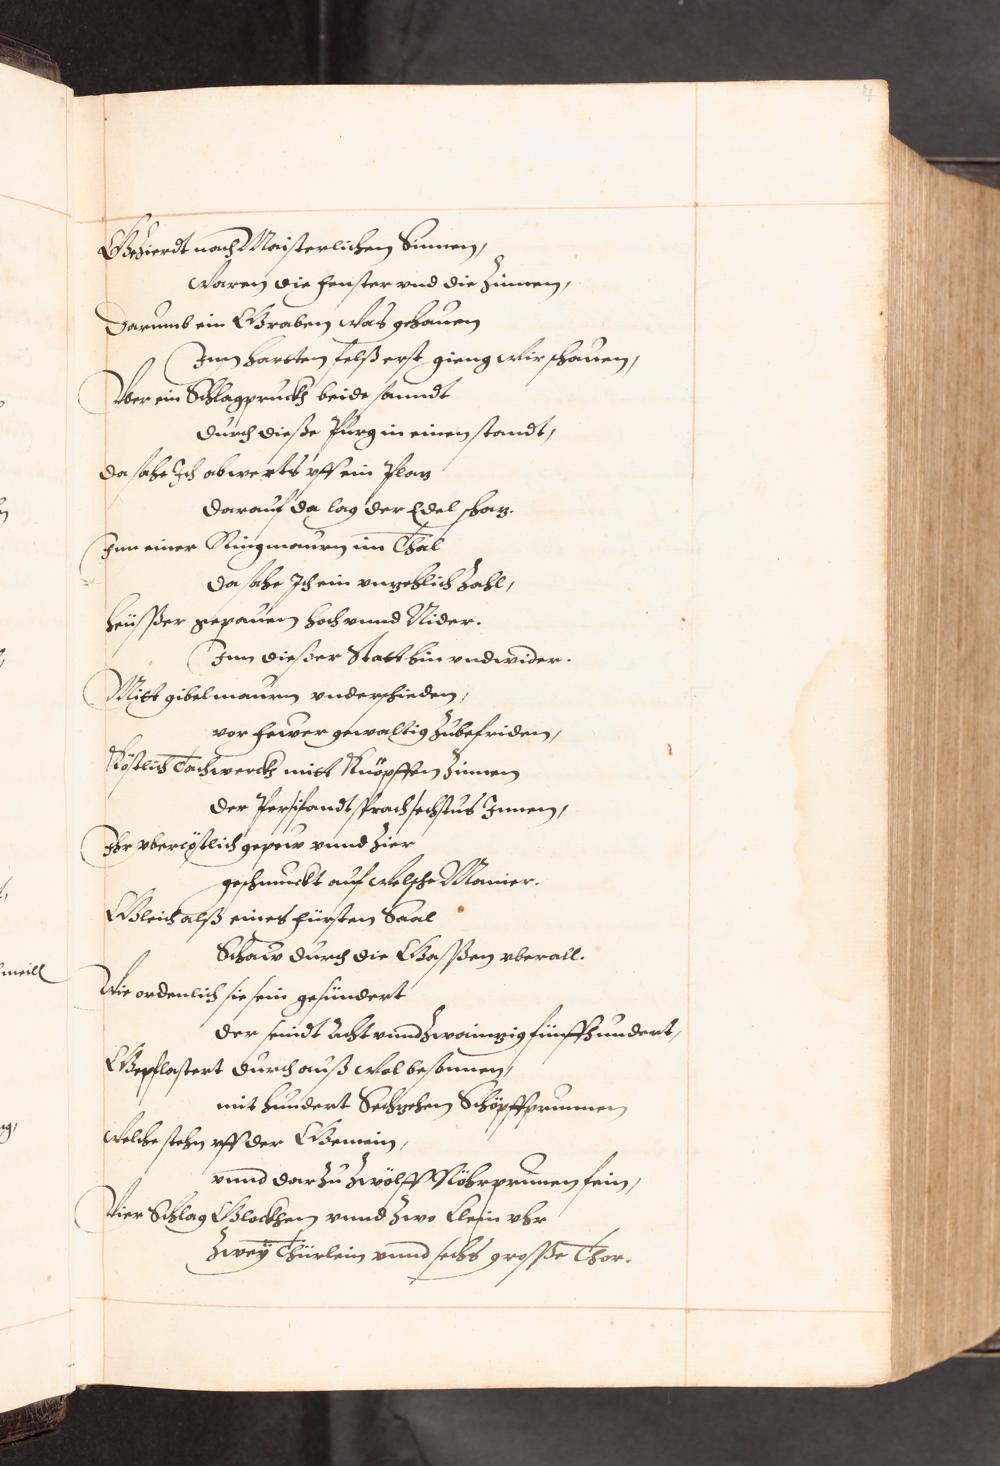 4
Gezierdt nach Maisterlichen Sinnen,
Waren die fenster vnd die Zinnen,
Darumb ein Graben was gehauen
Inn hartten felß erst gieng wir schauen,
Vber ein Schlagpruckh beide sanndt
durch dieße Purg in einen standt,
da sahe Ich abwerts vff ein Plaz
darauf da lag der Edel schaz.
Inn einer Ringmaurn im Thal
da sahe Ich ein vnzehlich Zahl,
Heüsser gepauen hoch vnnd Nider.
Inn dießer Statt hin vnd wider.
Mitt gibelmaurn vnderschieden,
vor feuer gewaltig zubefriden,
Köstlich Tachwerckh mitt Knöpffen Zinnen
der Persifandt sprach sechstus Innen,
Ihr vbercöstlich gepew vnnd Zier
geschmuckt auf Welsche Manier.
Gleich alß eines fürsten Saal
Schaw durch die Gassen vberall.
Wie ordenlich sie sein gesündert
der seindt Acht vnnd zwainzig fünffhundert,
Gepflastert durchauß wol besonnen,
mit hundert Sechzehen Schöpffprunnen
Welche stehn vff der Gemein,
vnnd darzu zwölff Röhrprunnen fein,
Vier Schlag Glockhen vnnd zwo klein vhr
Zwey Thürlein vnnd sechs grosse Thor.